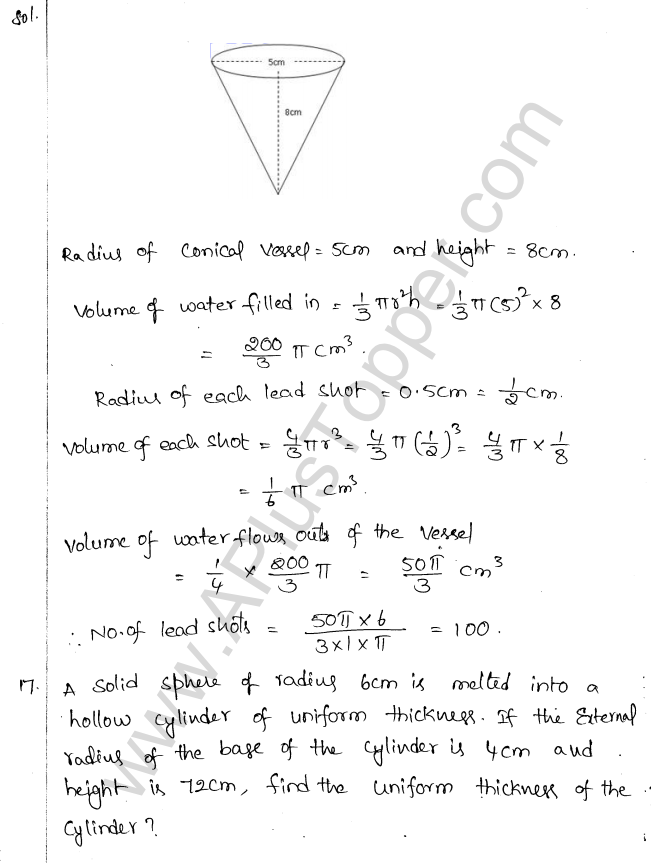 Sol.
5cm
8cm
Radius of conical vessel = 5cm and height = 8cm.
Volume of water filled in = 1/3 πr²h = 1/3 π(5)² × 8
= 200/3 π cm³.
Radius of each lead shot = 0.5cm = 1/2 cm.
Volume of each shot = 4/3 πr³ = 4/3 π (1/2)³ = 4/3 π × 1/8
= 1/6 π cm³.
Volume of water flows outs of the vessel
= 1/4 × 200/3 π = 50π/3 cm³
∴ No. of lead shots = 50π × 6 / 3 × 1 × π = 100.
17. A solid sphere of radius 6cm is melted into a
hollow cylinder of uniform thickness. If the External
radius of the base of the cylinder is 4cm and
height is 72cm, find the uniform thickness of the
cylinder?
www.APlusTopper.com